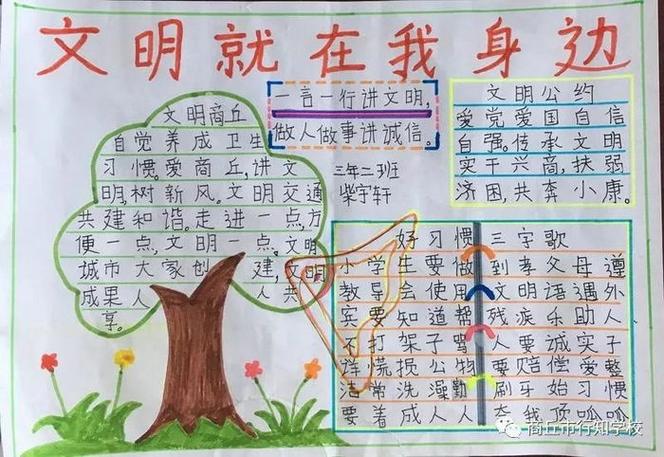 文明就在我身边
文明商丘
自觉养成卫生
习惯。爱商丘,讲文
明,树新风。文明交通
共建和谐。走进一点,方
便一点,文明一点。文明
城市大家创建,文明
成果人人共
享。
一言一行讲文明,
做人做事讲诚信。
三年二班
柴宇轩
文明公约
爱党爱国自信
自强。传承文明
实干兴商,扶弱
济困,共奔小康。
好习惯三字歌
小学生要做到孝父母遵
教导会使用文明语遇外
实要知道帮残疾乐助人
不打架子骂人要诚实子
慌损公物要赔偿爱整
洁常洗澡勤刷牙始习惯
要着成人人夸我顶呱呱
商丘市行知学校